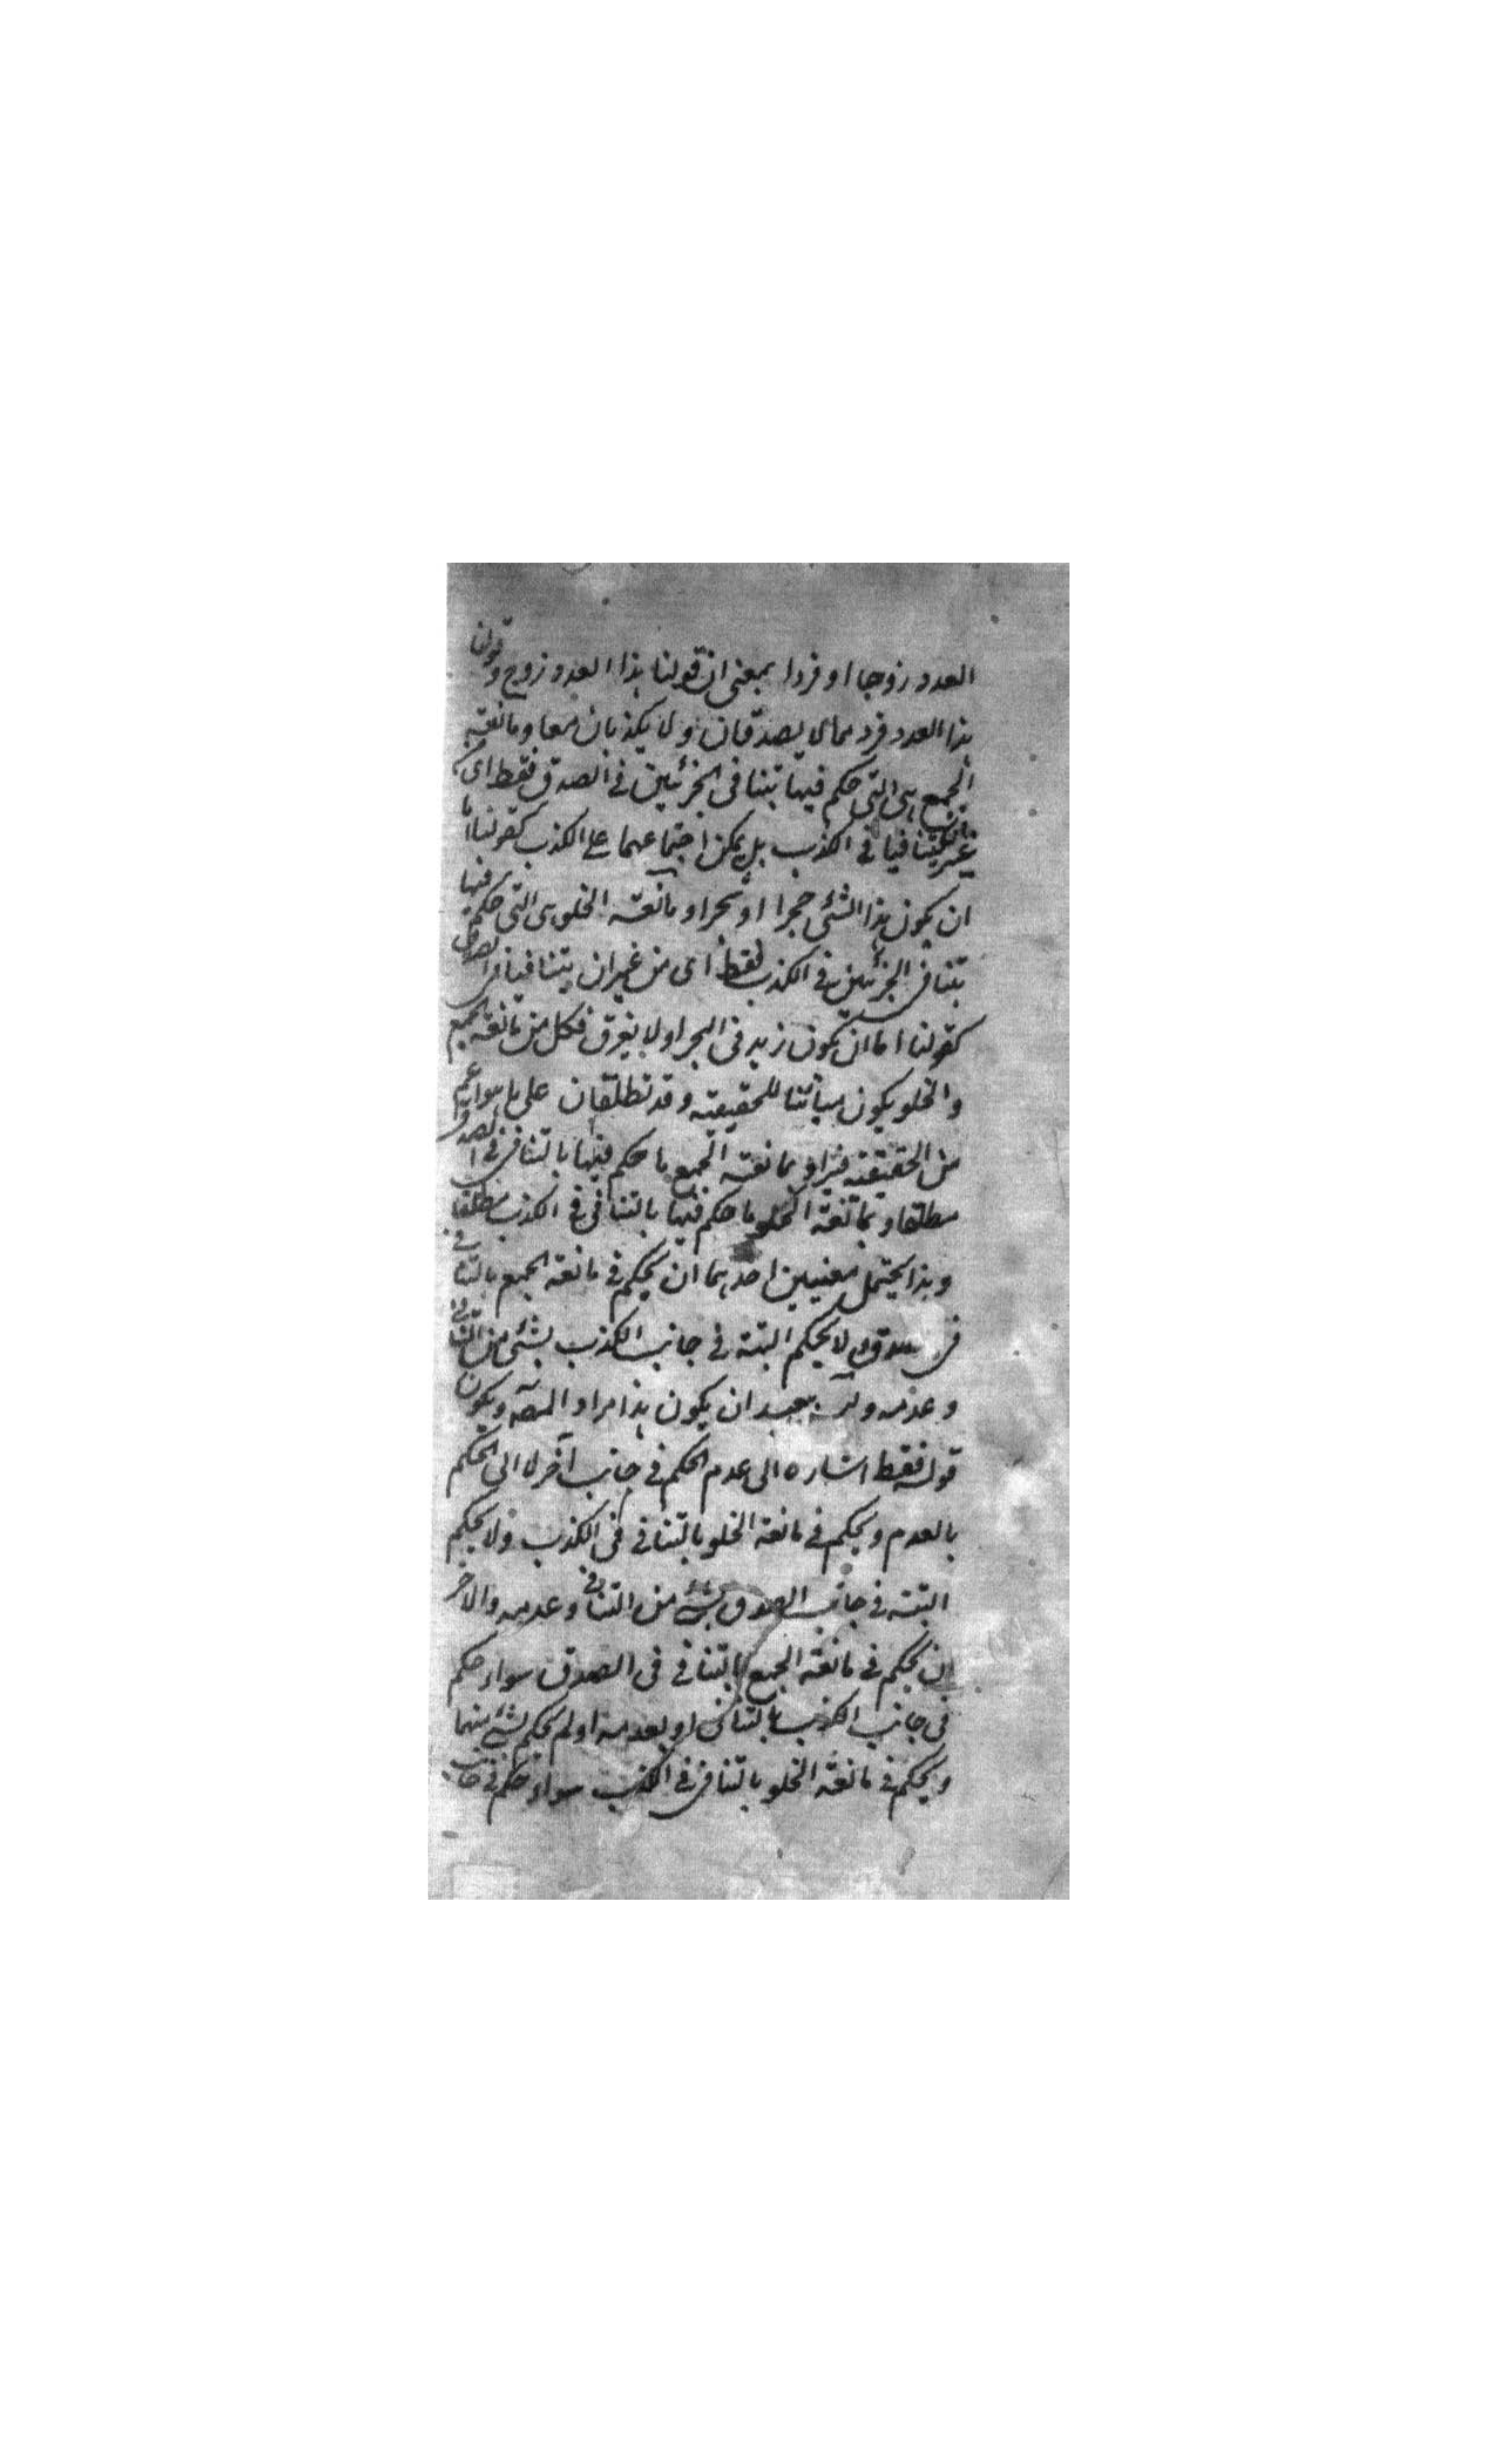 العدد زوجا او فردا بمعنى ان قولنا هذا العدد زوج وقولنا
هذا العدد فرد مما لا يصدقان ولا يكذبان معا ومانعة
الجمع هى التى حكم فيها بتنافى الجزئين فى الصدق فقط اى
غير ان يتنافيا فى الكذب بل يمكن اجتماعهما على الكذب كقولنا اما
ان يكون هذا الشئ حجرا او شجرا ومانعة الخلو هى التى حكم فيها
بتنافى الجزئين فى الكذب فقط اى من غير ان يتنافيا فى الصدق
كقولنا اما ان يكون زيد فى البحر او لا يغرق فكل من مانعة الجمع
والخلو يكون مباينا للحقيقية وقد تطلقان على ما هو اعم
من الحقيقية فيراد بمانعة الجمع ما حكم فيها بالتنافى فى الصدق
مطلقا وبمانعة الخلو ما حكم فيها بالتنافى فى الكذب مطلقا
وهذا يحتمل معنيين احدهما ان يحكم فى مانعة الجمع بالتنافى
فى الصدق ولا يحكم البتة فى جانب الكذب بشئ من التنافى
وعدمه ولا يبعد ان يكون هذا مراد المصـ ويكون
قوله فقط اشاره الى عدم الحكم فى جانب آخر لا الى الحكم
بالعدم ويحكم فى مانعة الخلو بالتنافى فى الكذب ولا يحكم
البتة فى جانب الصدق بشئ من التنافى وعدمه والآخر
ان يحكم فى مانعة الجمع بالتنافى فى الصدق سواء حكم
فى جانب الكذب بالتنافى او بعدمه او لم يحكم بشئ منهما
ويحكم فى مانعة الخلو بالتنافى فى الكذب سواء حكم فى جانب